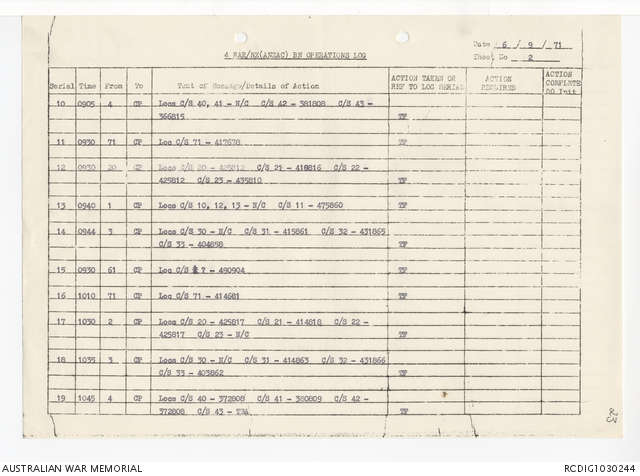 Date 6 / 9 / 71
4 RAR/NZ(ANZAC) BN OPERATIONS LOG
Sheet No 2
Serial Time From To Text of Message/Details of Action ACTION TAKEN OR REF TO LOG SERIAL ACTION REQUIRED ACTION COMPLETE OO Init
10 0905 4 CP Locs C/S 40, 41 - N/C C/S 42 - 381808 C/S 43 -
366815 TF
11 0930 71 CP Loc C/S 71 - 417678 TF
12 0930 20 CP Locs C/S 20 - 425812 C/S 21 - 418816 C/S 22 -
425812 C/S 23 - 435810 TF
13 0940 1 CP Locs C/S 10, 12, 13 - N/C C/S 11 - 475860 TF
14 0944 3 CP Locs C/S 30 - N/C C/S 31 - 415861 C/S 32 - 431865
C/S 33 - 404858 TF
15 0930 61 CP Loc C/S ? - 490904 TF
16 1010 71 CP Loc C/S 71 - 414681 TF
17 1030 2 CP Locs C/S 20 - 425817 C/S 21 - 414818 C/S 22 -
425817 C/S 23 - N/C TF
18 1035 3 CP Locs C/S 30 - N/C C/S 31 - 414863 C/S 32 - 431866
C/S 33 - 403862 TF
19 1045 4 CP Locs C/S 40 - 372808 C/S 41 - 380809 C/S 42 -
372808 C/S 43 - TF
AUSTRALIAN WAR MEMORIAL
RCDIG1030244